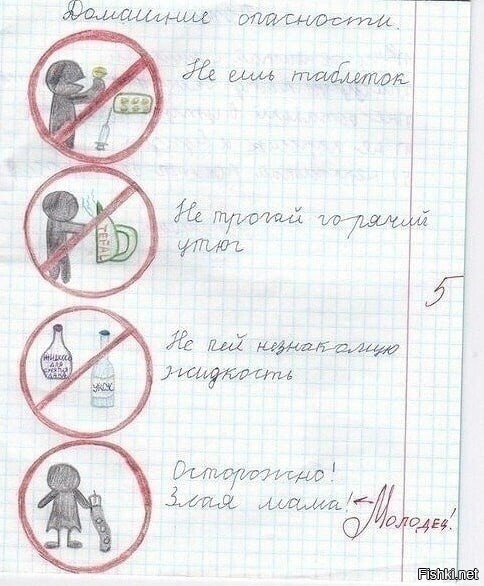 Домашние опасности.
Не ешь таблеток
TEFAL
Не трогай горячий
утюг
5
Не пей незнакомую
жидкость
ЖИДКОС
ДЛЯ
СНЯТИЯ
ЛАКА
УКСУС
Осторожно!
Злая мама!
Молодец!
Fishki.net